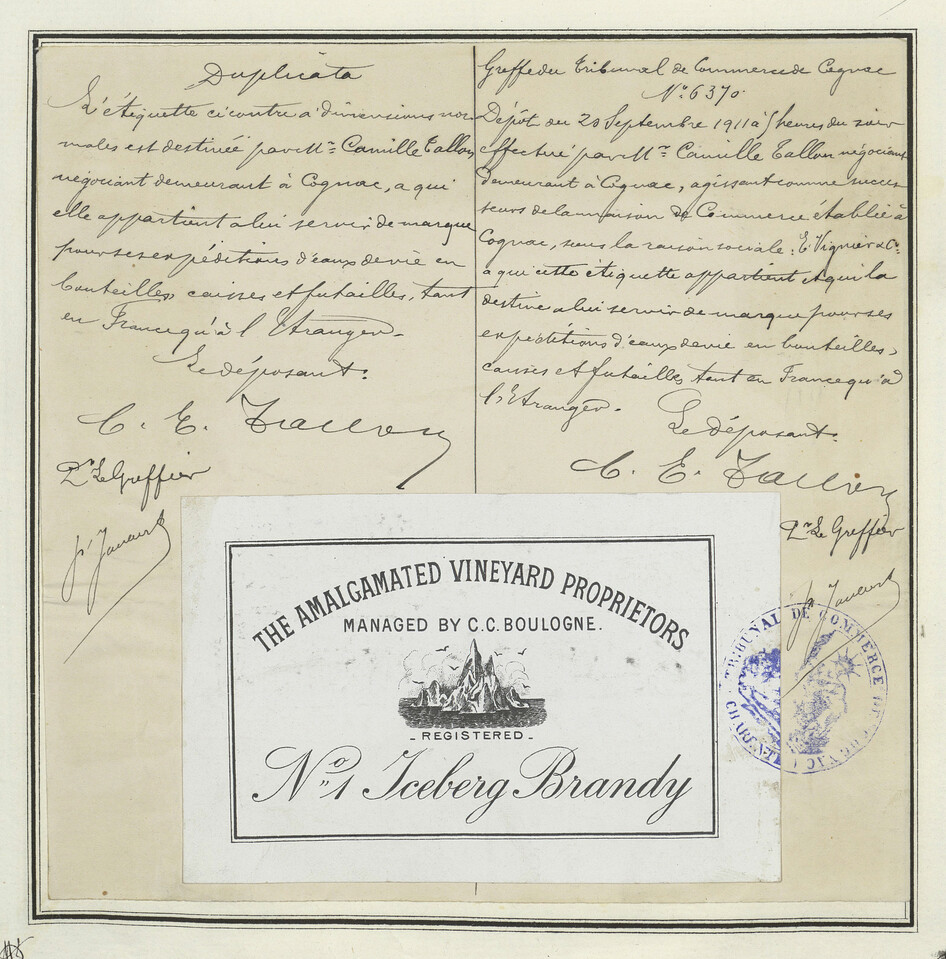 Duplicata
L'étiquette ci contre à dimensions nor-
males est destinée par Mr Camille Tallon
négociant demeurant à Cognac, a qui
elle appartient a lui servir de marque
pour ses expéditions d'eaux de vie en
bouteilles, caisses et futailles, tant
en France qu'à l'Etranger.
Le déposant:
C. E. Tallon
Pr Le Greffier
Greffe du Tribunal de Commerce de Cognac
No 6370.
Dépôt du 20 Septembre 1911 à 5 heures du soir
effectué par Mr Camille Tallon négociant
demeurant à Cognac, agissant comme succes-
seurs de la maison de Commerce établie à
Cognac, sous la raison sociale: E. Vignier & Co.
a qui cette étiquette appartient et qui la
destine a lui servir de marque pour ses
expéditions d'eaux de vie en bouteilles,
caisses et futailles, tant en France qu'à
l'Etranger.
Le déposant:
C. E. Tallon
Pr Le Greffier
THE AMALGAMATED VINEYARD PROPRIETORS
MANAGED BY C.C. BOULOGNE.
- REGISTERED -
No 1 Iceberg Brandy
TRIBUNAL DE COMMERCE DE COGNAC
CHARENTE